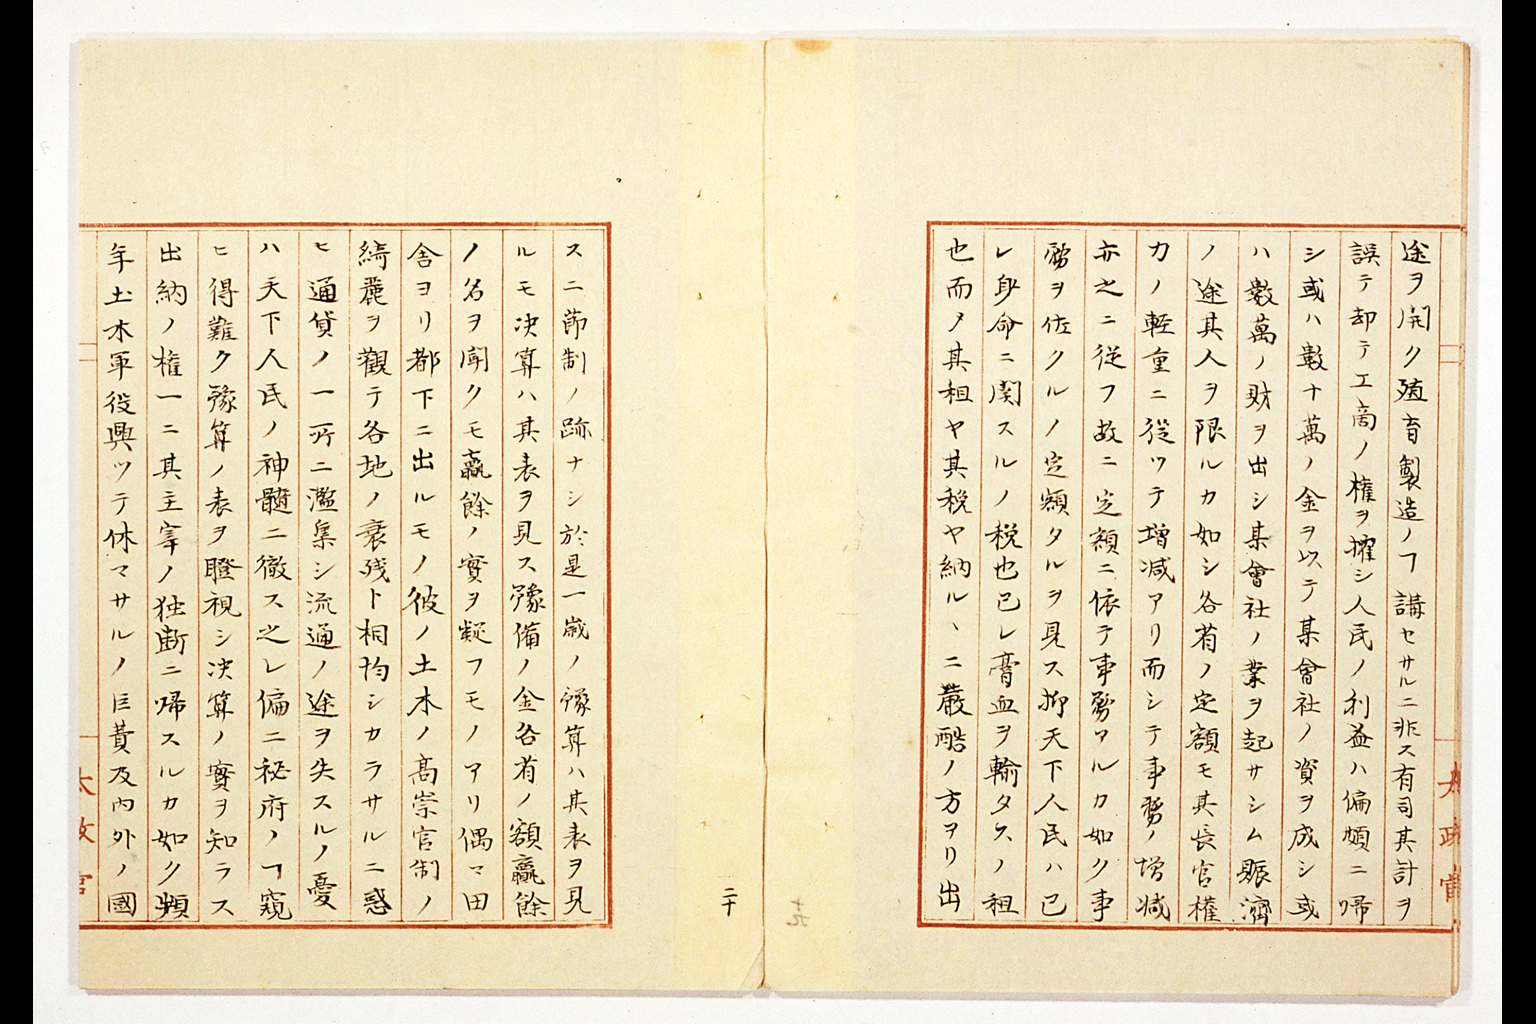 途ヲ開ク殖育製造ノヿ講セサルニ非ス有司其計ヲ
誤テ却テ工商ノ権ヲ擅シ人民ノ利益ハ偏頗ニ帰
シ或ハ數十萬ノ金ヲ以テ某會社ノ資ヲ成シ或
ハ數萬ノ財ヲ出シ某會社ノ業ヲ起サシム賑濟
ノ途其人ヲ限ルカ如シ各省ノ定額モ其長官權
力ノ輕重ニ従ツテ増減アリ而シテ事務ノ増減
亦之ニ從フ故ニ定額ニ依テ事務アルカ如ク事
務ヲ佐クルノ定額タルヲ見ス抑天下人民ハ己
レ身命ニ関スルノ税也己レ膏血ヲ輸タスノ租
也而メ其租ヤ其税ヤ納ルヽニ嚴酷ノ方ヲリ出
太政官
十九
スニ節制ノ跡ナシ於是一歳ノ豫算ハ其表ヲ見
ルモ决算ハ其表ヲ見ス豫備ノ金各省ノ額贏餘
ノ名ヲ聞クモ贏餘ノ實ヲ疑フモノアリ偶マ田
舎ヨリ都下ニ出ルモノ彼ノ土木ノ高崇官制ノ
綺麗ヲ觀テ各地ノ衰残ト相均シカラサルニ惑
ヒ通貨ノ一所ニ濫集シ流通ノ途ヲ失スルノ憂
ハ天下人民ノ神髓ニ徹ス之レ偏ニ秘府ノヿ窺
ヒ得難ク豫算ノ表ヲ瞪視シ决算ノ實ヲ知ラス
出納ノ権一ニ其主宰ノ独断ニ帰スルカ如ク頻
年土木軍役興ツテ休マサルノ巨費及内外ノ國
太政官
二十